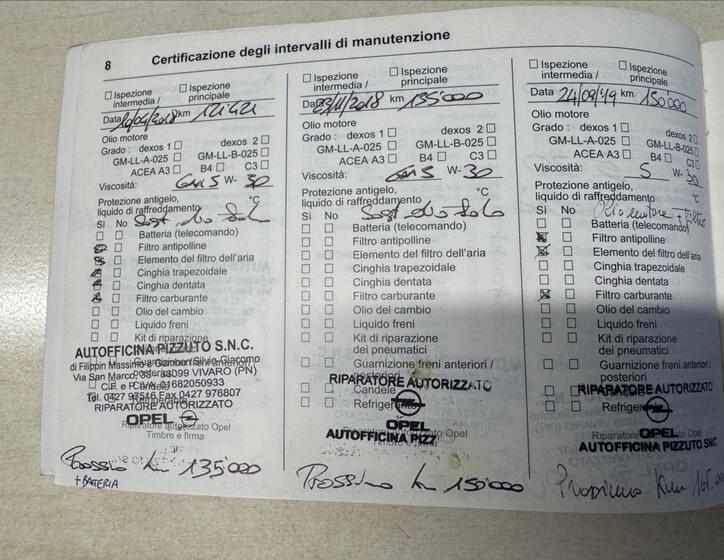 8 Certificazione degli intervalli di manutenzione
Ispezione intermedia / Ispezione principale
Data 10/04/2018 km 121421
Olio motore
Grado : dexos 1 dexos 2
GM-LL-A-025 GM-LL-B-025
ACEA A3 B4 C3
Viscosità: W- 30
Protezione antigelo, °C
liquido di raffreddamento
Sost. olio Solo
Sì No Batteria (telecomando)
Filtro antipolline
Elemento del filtro dell'aria
Cinghia trapezoidale
Cinghia dentata
Filtro carburante
Olio del cambio
Liquido freni
Kit di riparazione
AUTOFFICINA PIZZUTO S.N.C.
di Filippin Massimo e Silvio Giacomo
Via San Marco, 33099 VIVARO (PN)
C.F. e P. IVA 01682050933
Tel. 0427 97516 Fax 0427 976807
RIPARATORE AUTORIZZATO
OPEL
Riparatore autorizzato Opel
Timbro e firma
Prossimo km 135'000
+ BATTERIA
Ispezione intermedia / Ispezione principale
Data 23/11/2018 km 135'000
Olio motore
Grado : dexos 1 dexos 2
GM-LL-A-025 GM-LL-B-025
ACEA A3 B4 C3
Viscosità: W- 30
Protezione antigelo, °C
liquido di raffreddamento
Sost. olio Solo
Sì No Batteria (telecomando)
Filtro antipolline
Elemento del filtro dell'aria
Cinghia trapezoidale
Cinghia dentata
Filtro carburante
Olio del cambio
Liquido freni
Kit di riparazione
dei pneumatici
Guarnizione freni anteriori /
posteriori
RIPARATORE AUTORIZZATO
Candele
Refrigerante
OPEL
Riparatore autorizzato Opel
AUTOFFICINA PIZZ
Prossimo km 150'000
Ispezione intermedia / Ispezione principale
Data 24/09/19 km 150'000
Olio motore
Grado : dexos 1 dexos 2
GM-LL-A-025 GM-LL-B-025
ACEA A3 B4 C3
Viscosità: 5 W- 30
Protezione antigelo, °C
liquido di raffreddamento
Olio motore + Filtro
Sì No Batteria (telecomando)
Filtro antipolline
Elemento del filtro dell'aria
Cinghia trapezoidale
Cinghia dentata
Filtro carburante
Olio del cambio
Liquido freni
Kit di riparazione
dei pneumatici
Guarnizione freni anteriori /
posteriori
RIPARATORE AUTORIZZATO
Candele
Refrigerante
OPEL
Riparatore autorizzato Opel
AUTOFFICINA PIZZUTO SNC
Timbro e firma
Prossimo Km